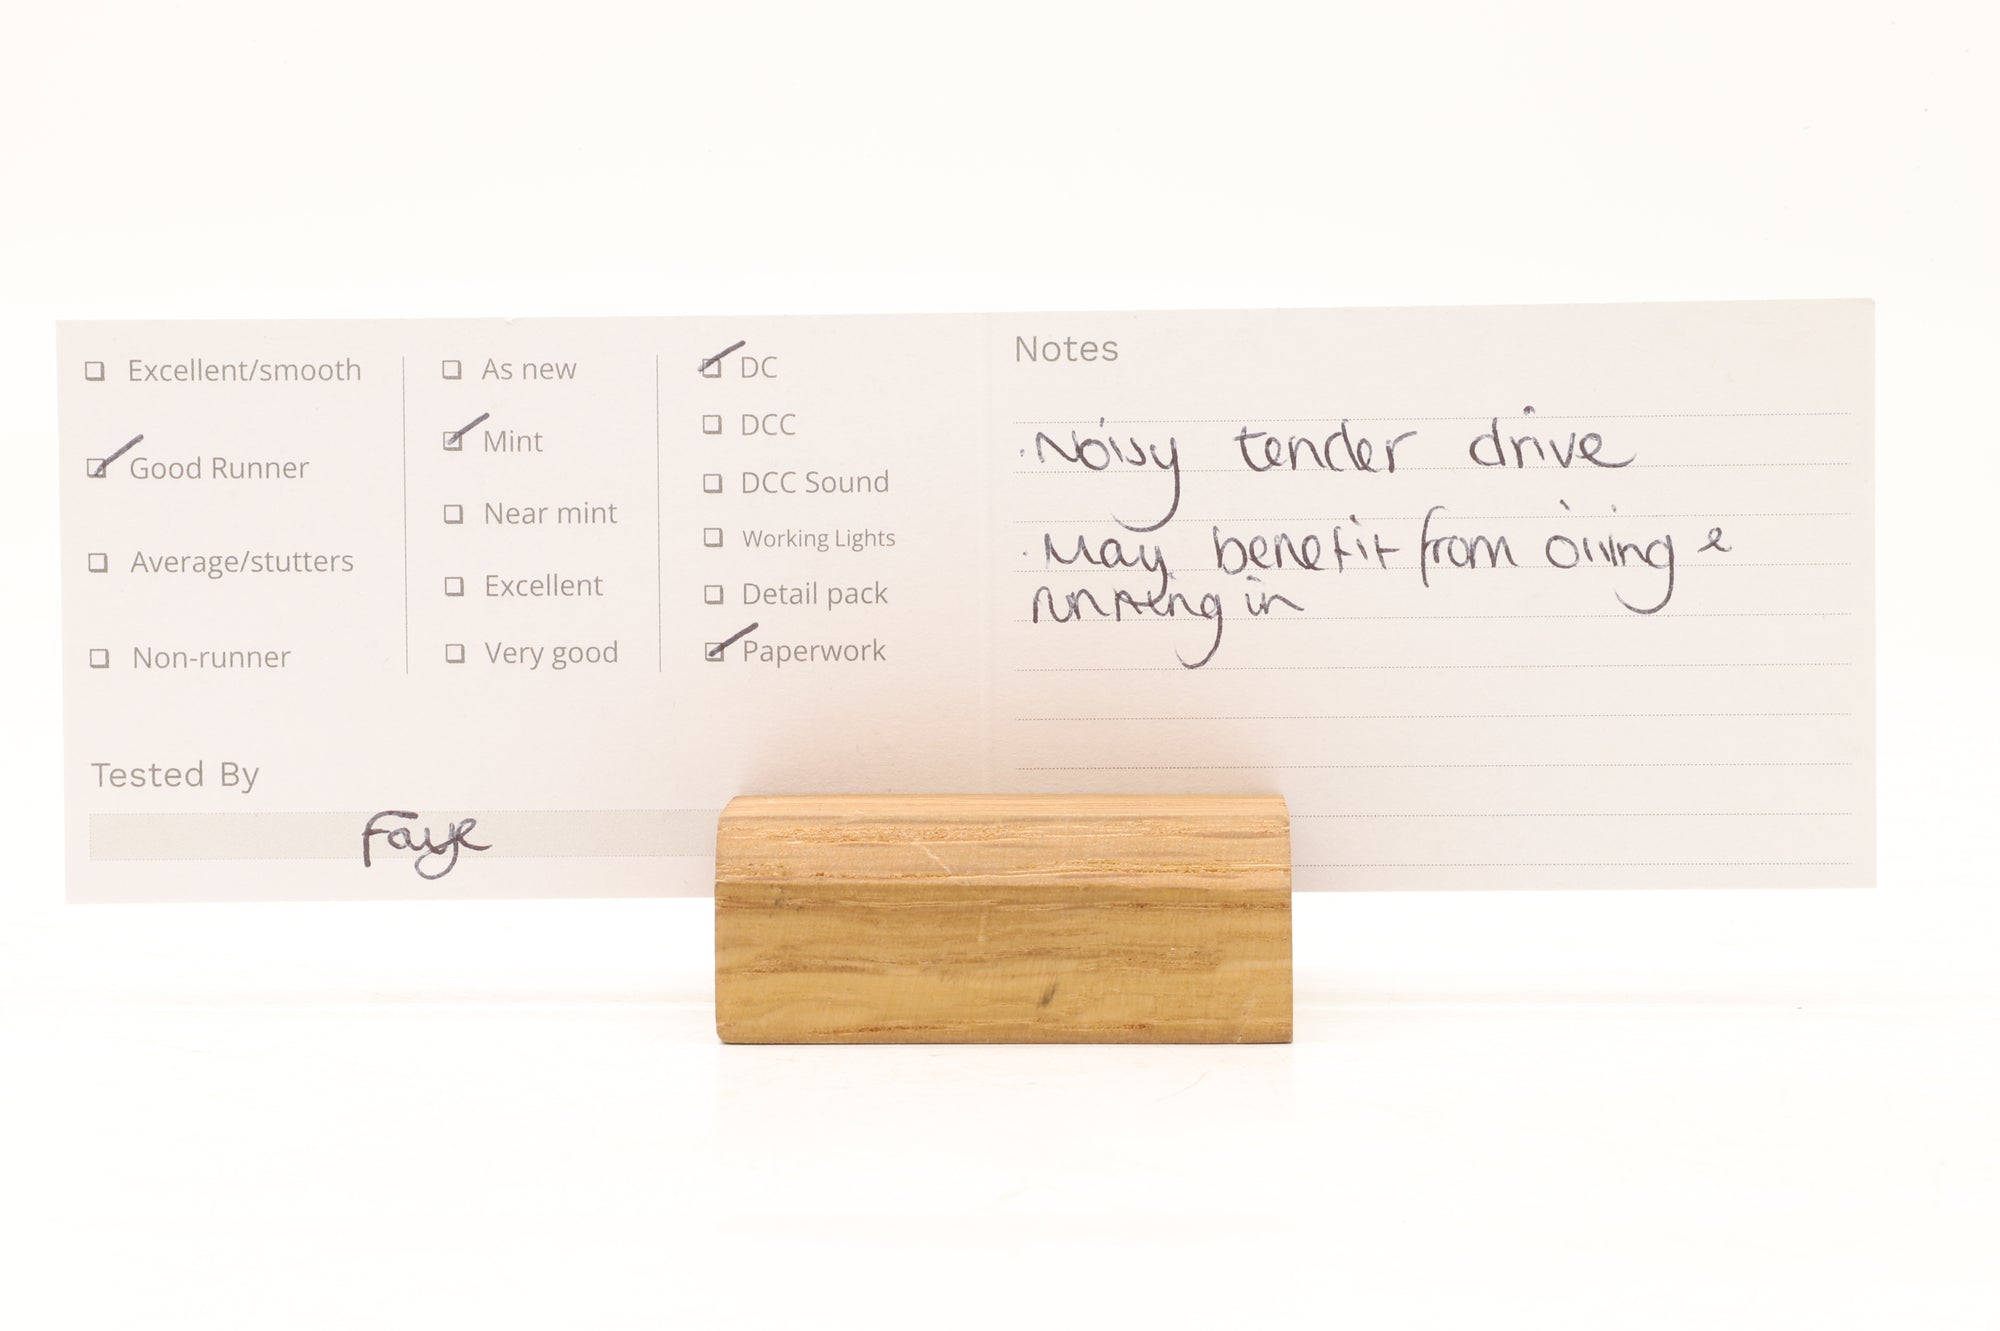 Excellent/smooth
Good Runner
Average/stutters
Non-runner
As new
Mint
Near mint
Excellent
Very good
DC
DCC
DCC Sound
Working Lights
Detail pack
Paperwork
Tested By
Faye
Notes
· Noisy tender drive
· May benefit from oiling &
running in